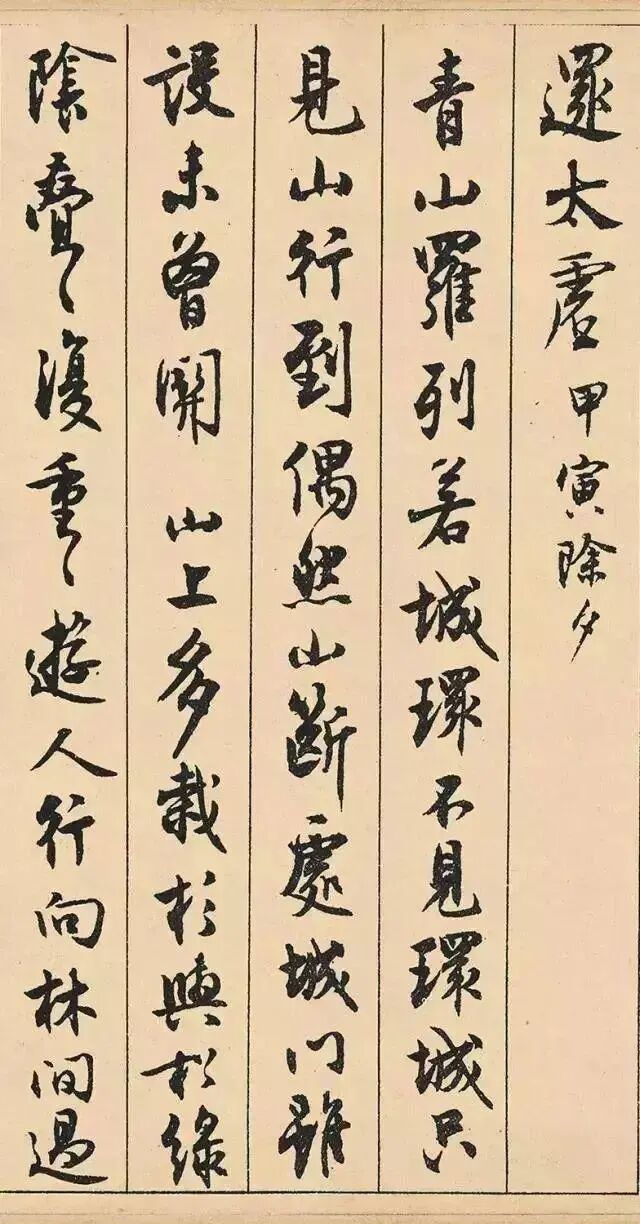 還太虛 甲寅除夕
青山羅列若城環不見環城只
見山行到偶然山斷處城門雖
設未曾開 山上多栽杉與松綠
陰疊〻復重〻遊人行向林間過